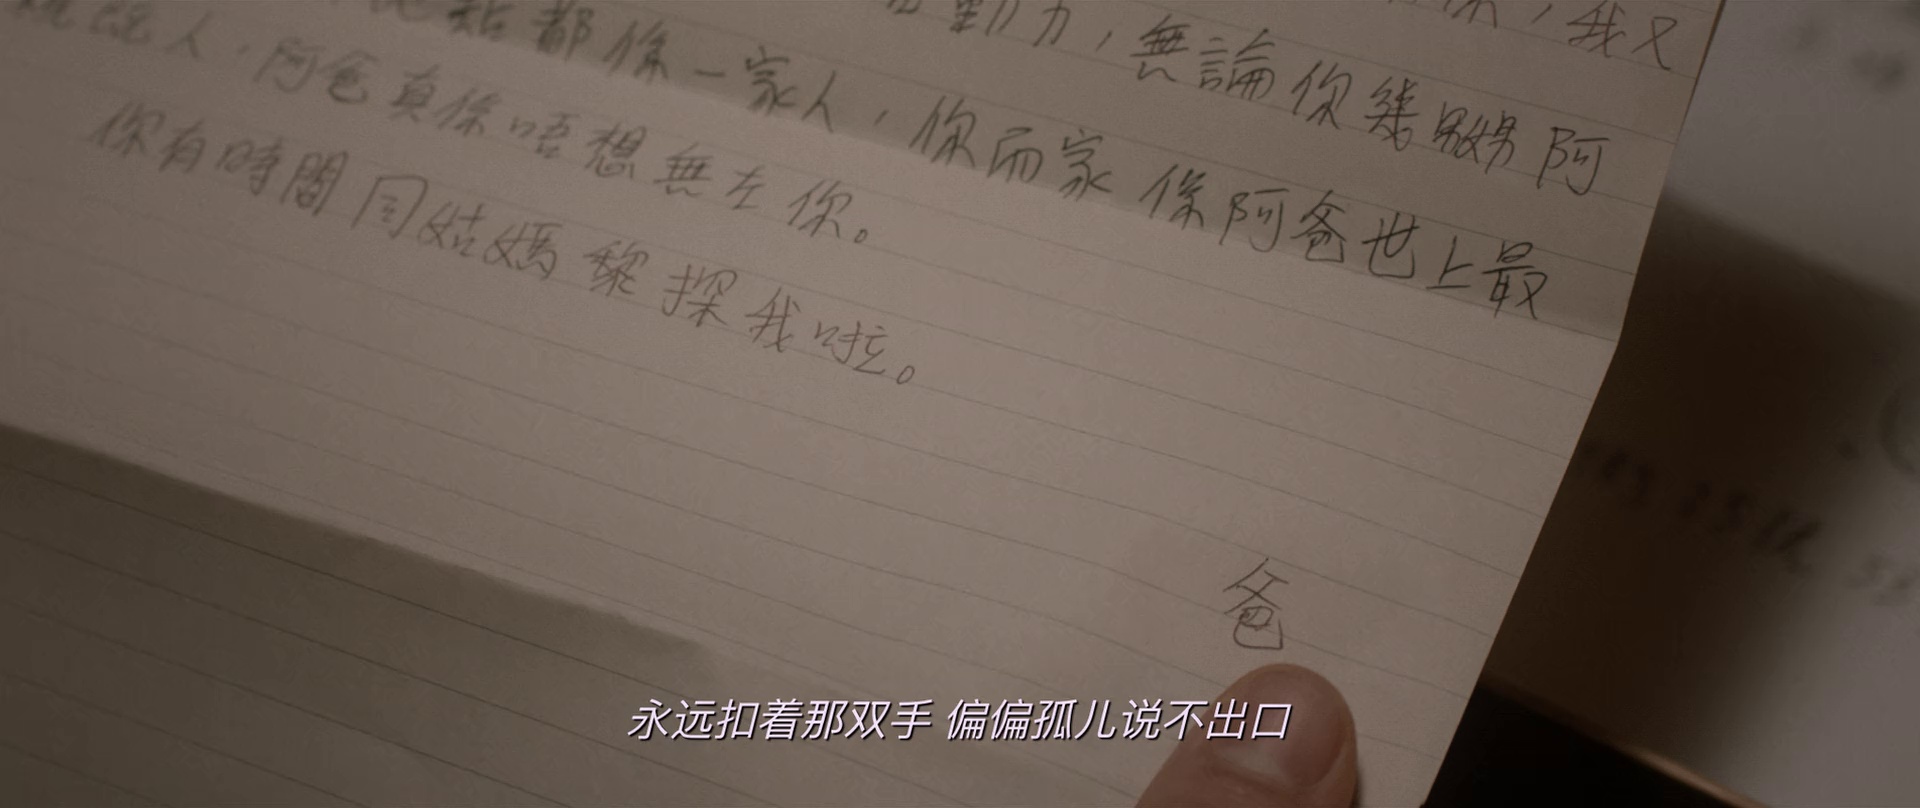 ，我又
勤力，無論你幾嬲阿
點都係一家人，你而家係阿爸世上最
人，阿爸真係唔想無左你。
你有時間同姑媽黎探我啦。
爸
永远扣着那双手 偏偏孤儿说不出口